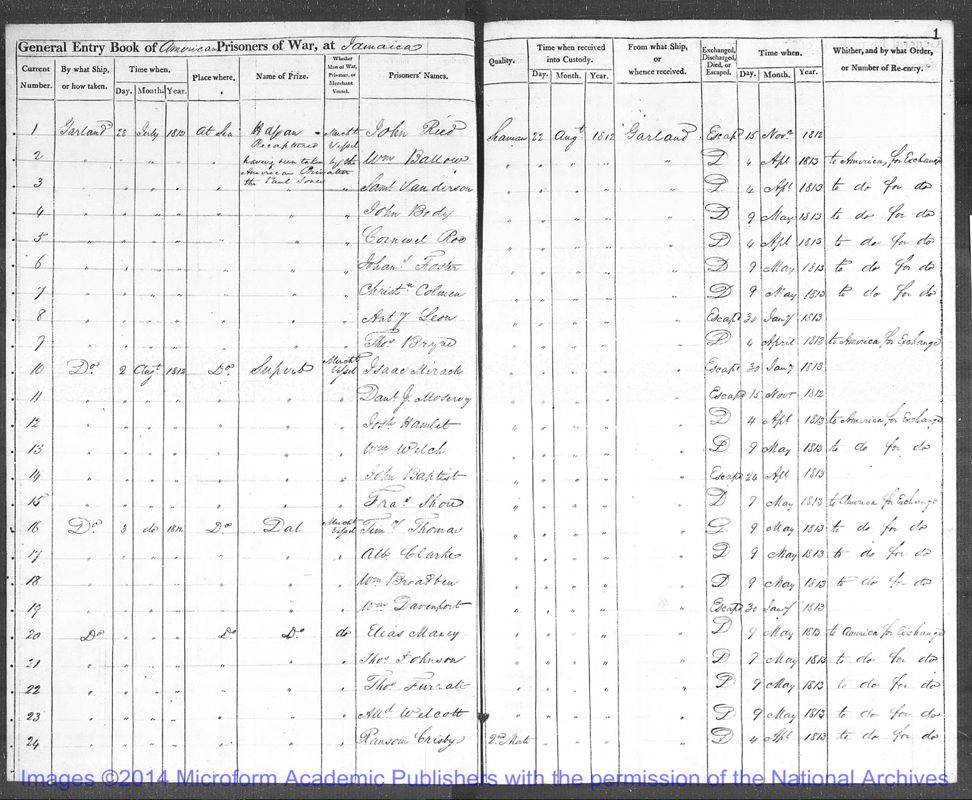 1
General Entry Book of American Prisoners of War, at Jamaica
Current Number. By what Ship, or how taken. Time when. Day. Month. Year. Place where. Name of Prize. Whether Man of War, Privateer, or Merchant Vessel. Prisoners' Names. Quality. Time when received into Custody. Day. Month. Year. From what Ship, or whence received. Exchanged, Discharged, Died, or Escaped. Time when. Day. Month. Year. Whither, and by what Order, or Number of Re-entry.
1 Garland 28 July 1812 At Sea Hassan Mercht Vessel John Ried Seaman 22 Augt 1812 Garland Escapd 15 Novr 1812
Recaptured
2 " " " " " having been taken by the Wm Ballow " " " " " D 4 Apl 1813 to America, for Exchange
American Privateer
3 " " " " " the Paul Jones " Saml Vanderson " " " " " D 4 Apl 1813 to do for do
4 " " " " " " " John Body " " " " " D 9 May 1813 to do for do
5 " " " " " " " Cornwel Roe " " " " " D 4 Apl 1813 to do for do
6 " " " " " " " Johans Foster " " " " " D 9 May 1813 to do for do
7 " " " " " " " Christn Colmen " " " " " D 9 May 1813 to do for do
8 " " " " " " " Anty Leon " " " " " Escapd 30 Jany 1813
9 " " " " " " " Thos Bryne " " " " " D 4 April 1813 to America, for Exchange
10 Do 2 Augt 1812 Do Superb Mercht Vessel Isaac Mirack " " " " " Escapd 30 Jany 1813
11 " " " " " " " Danl J. Moservy " " " " " Escapd 15 Novr 1812
12 " " " " " " " Josh Hamlet " " " " " D 4 Apl 1813 to America, for Exchange
13 " " " " " " " Wm Welch " " " " " D 9 May 1813 to do for do
14 " " " " " " " John Baptist " " " " " Escapd 24 Apl 1813
15 " " " " " " " Fras Shou " " " " " D 9 May 1813 to America for Exchange
16 Do 3 do 1812 Do Dal Mercht Vessel Timy Thomas " " " " " D 9 May 1813 to do for do
17 " " " " " " " Alb. Clarke " " " " " D 9 May 1813 to do for do
18 " " " " " " " Wm Broadben " " " " " D 9 May 1813 to do for do
19 " " " " " " " Wm Davenport " " " " " Escapd 30 Jany 1813
20 Do " " " Do Do do Elias Maxey " " " " " D 9 May 1813 to America for Exchange
21 " " " " " " " Thos Johnson " " " " " D 9 May 1813 to do for do
22 " " " " " " " Thos Furralt " " " " " D 9 May 1813 to do for do
23 " " " " " " " Welcott " " " " " D 9 May 1813 to do for do
24 " " " " " " " Ransom Crisby 2nd Mate " " " " D 4 Apl 1813 to do for do
Images ©2014 Microform Academic Publishers with the permission of the National Archives